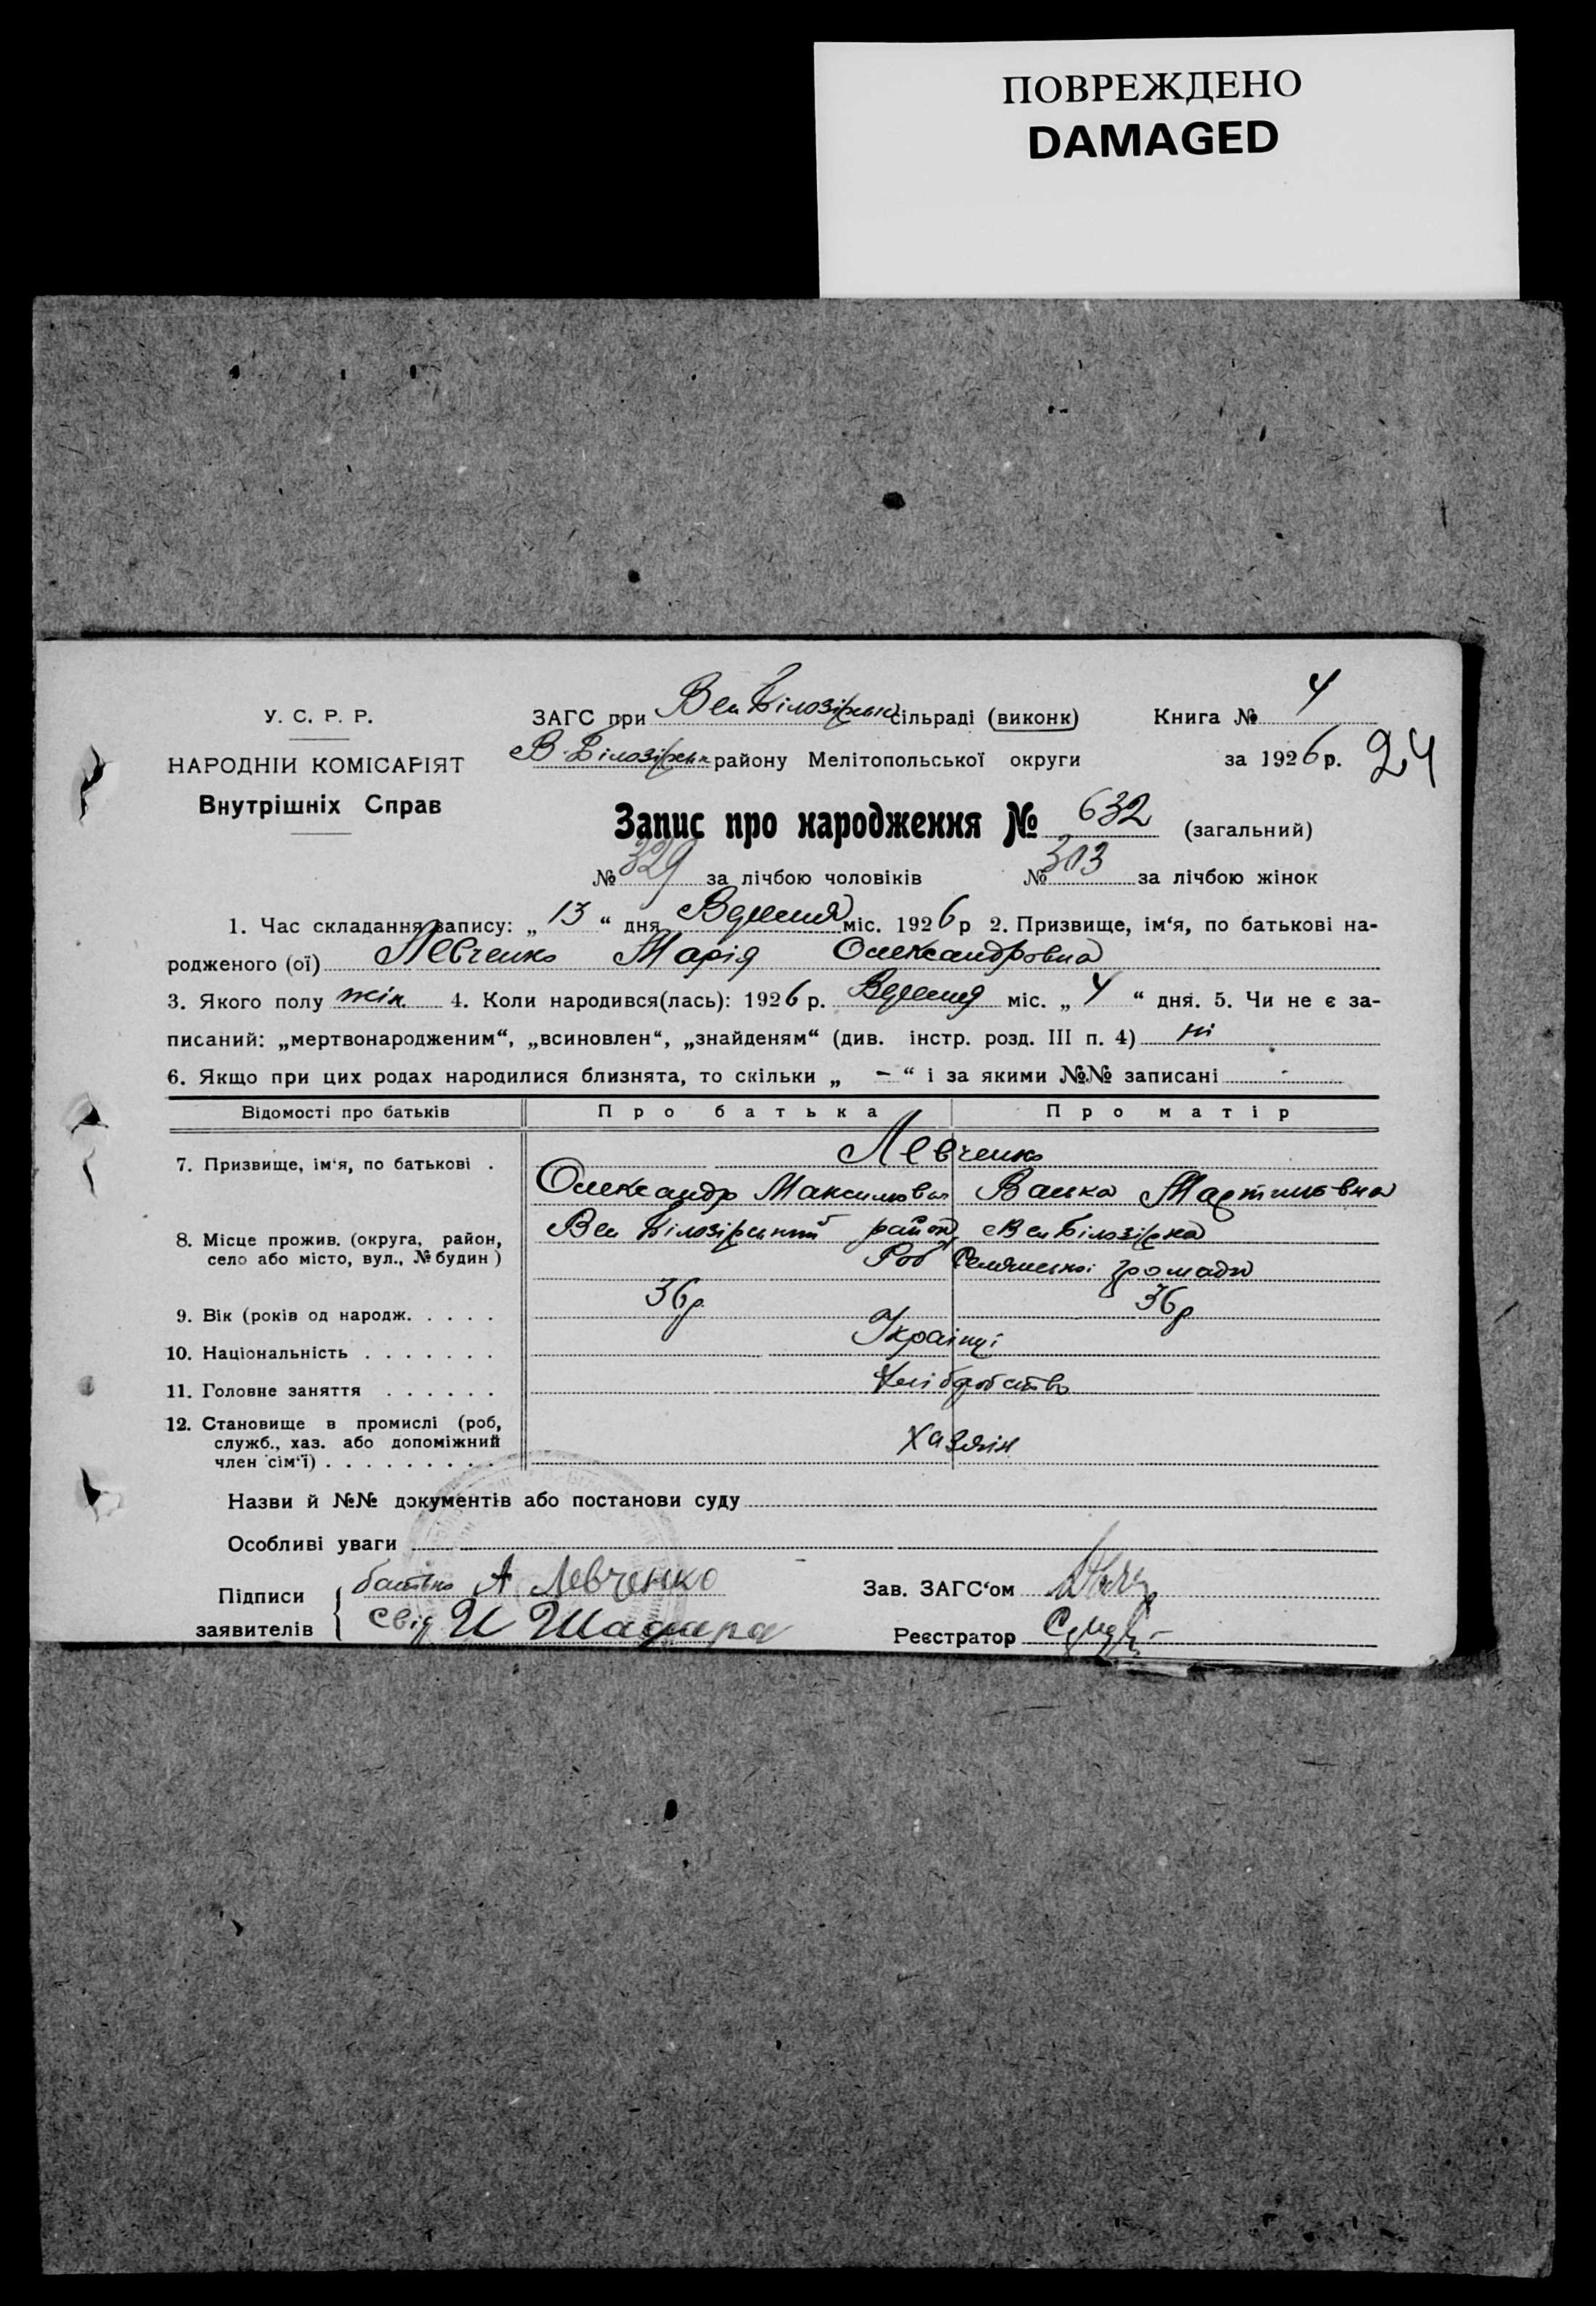 ПОВРЕЖДЕНО
DAMAGED
У. С. Р. Р.
НАРОДНІЙ КОМІСАРІЯТ
Внутрішніх Справ
ЗАГС при Вел Білозірськ сільраді (виконк)
В-Білозірськ району Мелітопольської округи
Книга № 4
за 1926 р. 24
Запис про народження № 632 (загальний)
№ 329 за лічбою чоловіків № 303 за лічбою жінок
1. Час складання запису: „ 13 “ дня Вересня міс. 1926 р 2. Призвище, ім‘я, по батькові на-
родженого (ої) Левченко Марія Олександровна
3. Якого полу жін 4. Коли народився(лась): 1926 р. Вересня міс. „ 4 “ дня. 5. Чи не є за-
писаний: „мертвонародженим“, „всиновлен“, „знайденям“ (див. інстр. розд. III п. 4) ні
6. Якщо при цих родах народилися близнята, то скільки „ - “ і за якими №№ записані -
Відомості про батьків Про батька Про матір
7. Призвище, ім‘я, по батькові . Левченко
Олександр Максимович Мартиновна
8. Місце прожив. (округа, район,
село або місто, вул., № будин)
Вел Білозірський район, с Вел Білозірка
Селянської громади
9. Вік (років од народж. . . . . 36р. 36р
10. Національність . . . . . . . Українці
11. Головне заняття . . . . . . Хліборобство
12. Становище в промислі (роб,
служб., хаз. або допоміжний
член сім‘ї) . . . . . . . . .
Хазяїн
Назви й №№ документів або постанови суду
Особливі уваги
Підписи
заявителів
батько А Левченко
свід И
Зав. ЗАГС‘ом
Реєстратор